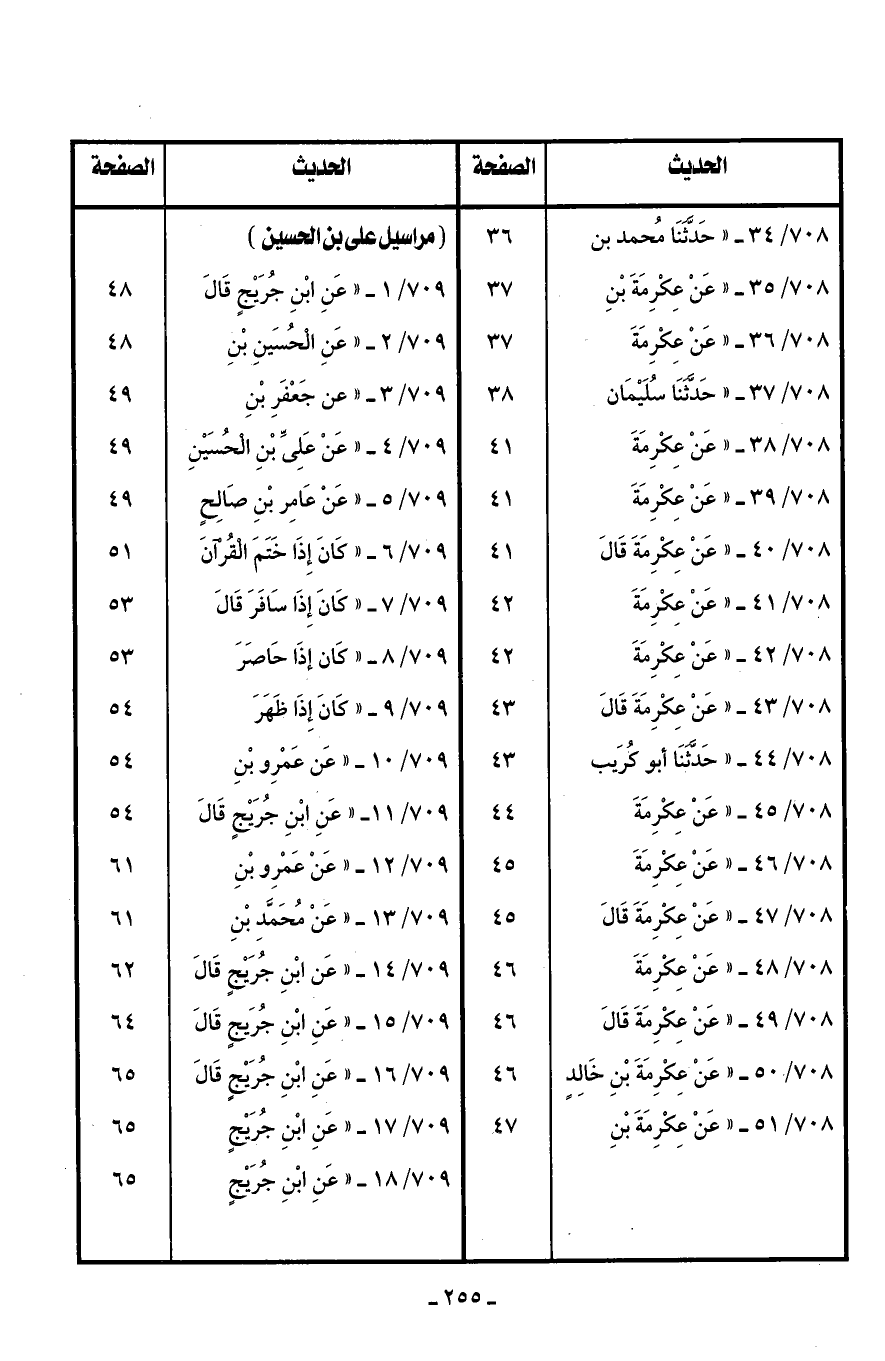 الحديث الصفحة الحديث الصفحة
٣٤/٧٠٨ ـ « حَدَّثَنَا مُحمد بن ٣٦
٣٥/٧٠٨ ـ « عَنْ عِكْرِمَةَ بْنِ ٣٧
٣٦/٧٠٨ ـ « عَنْ عِكْرِمَةَ ٣٧
٣٧/٧٠٨ ـ « حَدَّثَنَا سُلَيْمَان ٣٨
٣٨/٧٠٨ ـ « عَنْ عِكْرِمَةَ ٤١
٣٩/٧٠٨ ـ « عَنْ عِكْرِمَةَ ٤١
٤٠/٧٠٨ ـ « عَنْ عِكْرِمَةَ قَالَ ٤١
٤١/٧٠٨ ـ « عَنْ عِكْرِمَةَ ٤٢
٤٢/٧٠٨ ـ « عَنْ عِكْرِمَةَ ٤٢
٤٣/٧٠٨ ـ « عَنْ عِكْرِمَةَ قَالَ ٤٣
٤٤/٧٠٨ ـ « حَدَّثَنَا أبو كُرَيب ٤٣
٤٥/٧٠٨ ـ « عَنْ عِكْرِمَةَ ٤٤
٤٦/٧٠٨ ـ « عَنْ عِكْرِمَةَ ٤٥
٤٧/٧٠٨ ـ « عَنْ عِكْرِمَةَ قَالَ ٤٥
٤٨/٧٠٨ ـ « عَنْ عِكْرِمَةَ ٤٦
٤٩/٧٠٨ ـ « عَنْ عِكْرِمَةَ قَالَ ٤٦
٥٠/٧٠٨ ـ « عَنْ عِكْرِمَةَ بْنِ خَالِدٍ ٤٦
٥١/٧٠٨ ـ « عَنْ عِكْرِمَةَ بْنِ ٤٧
( مراسيل على بن الحسين )
١/٧٠٩ ـ « عَنِ ابْنِ جُرَيْجٍ قَالَ ٤٨
٢/٧٠٩ ـ « عَنِ الْحُسَينِ بْنِ ٤٨
٣/٧٠٩ ـ « عن جَعْفَرِ بْنِ ٤٩
٤/٧٠٩ ـ « عَنْ عَلِىِّ بْنِ الْحُسَيْنِ ٤٩
٥/٧٠٩ ـ « عَنْ عَامِرِ بْنِ صَالِحٍ ٤٩
٦/٧٠٩ ـ « كَانَ إِذَا خَتَمَ الْقُرآنَ ٥١
٧/٧٠٩ ـ « كَانَ إِذَا سَافَرَ قَالَ ٥٣
٨/٧٠٩ ـ « كَان إِذَا حَاصَرَ ٥٣
٩/٧٠٩ ـ « كَانَ إِذَا ظَهَرَ ٥٤
١٠/٧٠٩ ـ « عَن عَمْرِو بْنِ ٥٤
١١/٧٠٩ ـ « عَنِ ابْنِ جُرَيْجٍ قَالَ ٥٤
١٢/٧٠٩ ـ « عَنْ عَمْرِو بْنِ ٦١
١٣/٧٠٩ ـ « عَنْ مُحَمَّدِ بْنِ ٦١
١٤/٧٠٩ ـ « عَنِ ابْنِ جُرَيْجٍ قَالَ ٦٢
١٥/٧٠٩ ـ « عَنِ ابْنِ جُرَيجٍ قَالَ ٦٤
١٦/٧٠٩ ـ « عَنِ ابْنِ جُرَيْجٍ قَالَ ٦٥
١٧/٧٠٩ ـ « عَنِ ابْنِ جُرَيْجٍ ٦٥
١٨/٧٠٩ ـ « عَنِ ابْنِ جُرَيْجٍ ٦٥
ـ ٢٥٥ ـ